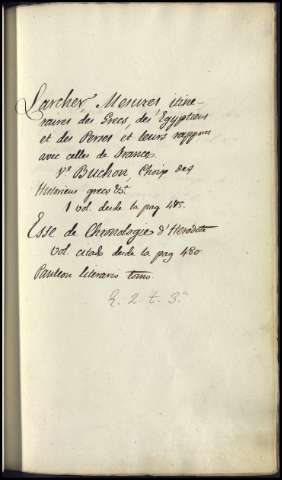 Larcher, Mesures itiné-
raires des Grecs, des Egyptiens
et des Perses et leurs rapports
avec celles de France.
Vº Buchon, Choix des
Historiens grecs &ª.
1 vol. desde la pag 475.
Esse de Chronologie d'Herodote
vol. citado desde la pag 480
Panteon literario tomo
E. 2. t. 3.º